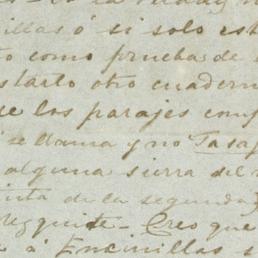 illas ó si solo est
como pruebas de
otro cuadern
e los parajes com
se llama y no Tasa
alguna sierra del
de la segunda
Creo que
a Encinillas s